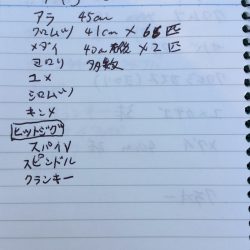 アラ 45cm
クロムツ 41cm × 6匹
メダイ 40cm前後 × 2匹
ヨロリ 多数
ユメ
シロムツ
キンメ
ヒットジグ
スパイV
スピンドル
クランキー